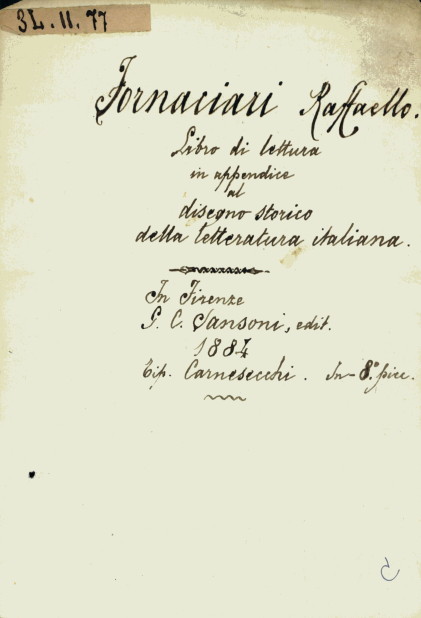 3L.II.77
Fornaciari Raffaello.
Libro di lettura
in appendice
al
disegno storico
della letteratura italiana.
In Firenze
G. C. Sansoni, edit.
1884
Tip. Carnesecchi. In-8.° picc.